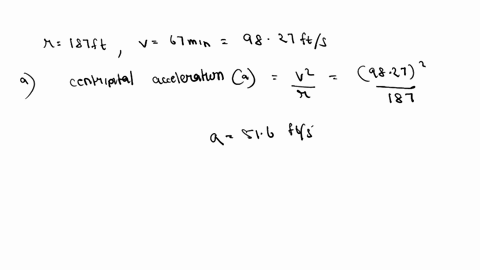 r = 187ft , v = 67 min = 98.27 ft/s
a) centripetal acceleration (a) = v²/r = (98.27)²/187
a = 51.6 ft/s